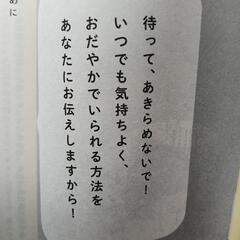 待って、あきらめないで!
いつでも気持ちよく、
おだやかでいられる方法を
あなたにお伝えしますから!
めに